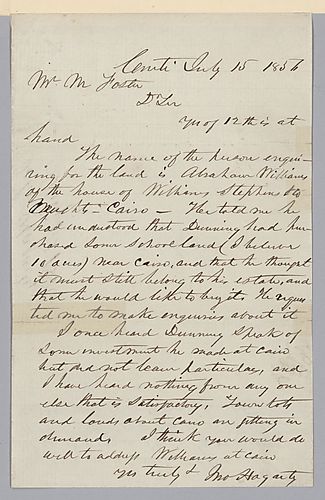 Cinti July 15 1856
Mr M Foster
Dr Sir
Yrs of 12th is at
hand
The name of the person enqui-
ring for the land is Abraham Williams
of the house of Williams Stephens &
Cairo – He told me he
had understood that Dunning had pur-
chased some school land (I believe
16 acres) near Cairo, and that he thought
it must still belong to his estate, and
that he would like to buy it. He reques
ted me to make enquiries about it
I once heard Dunning speak of
some investment he made at cairo
but did not learn particulars, and
I have heard nothing from any one
else that is satisfactory. Town lots
and lands about cairo are getting in
demand. I think you would do
well to address Williams at cairo
yrs truly Jno Hagarty